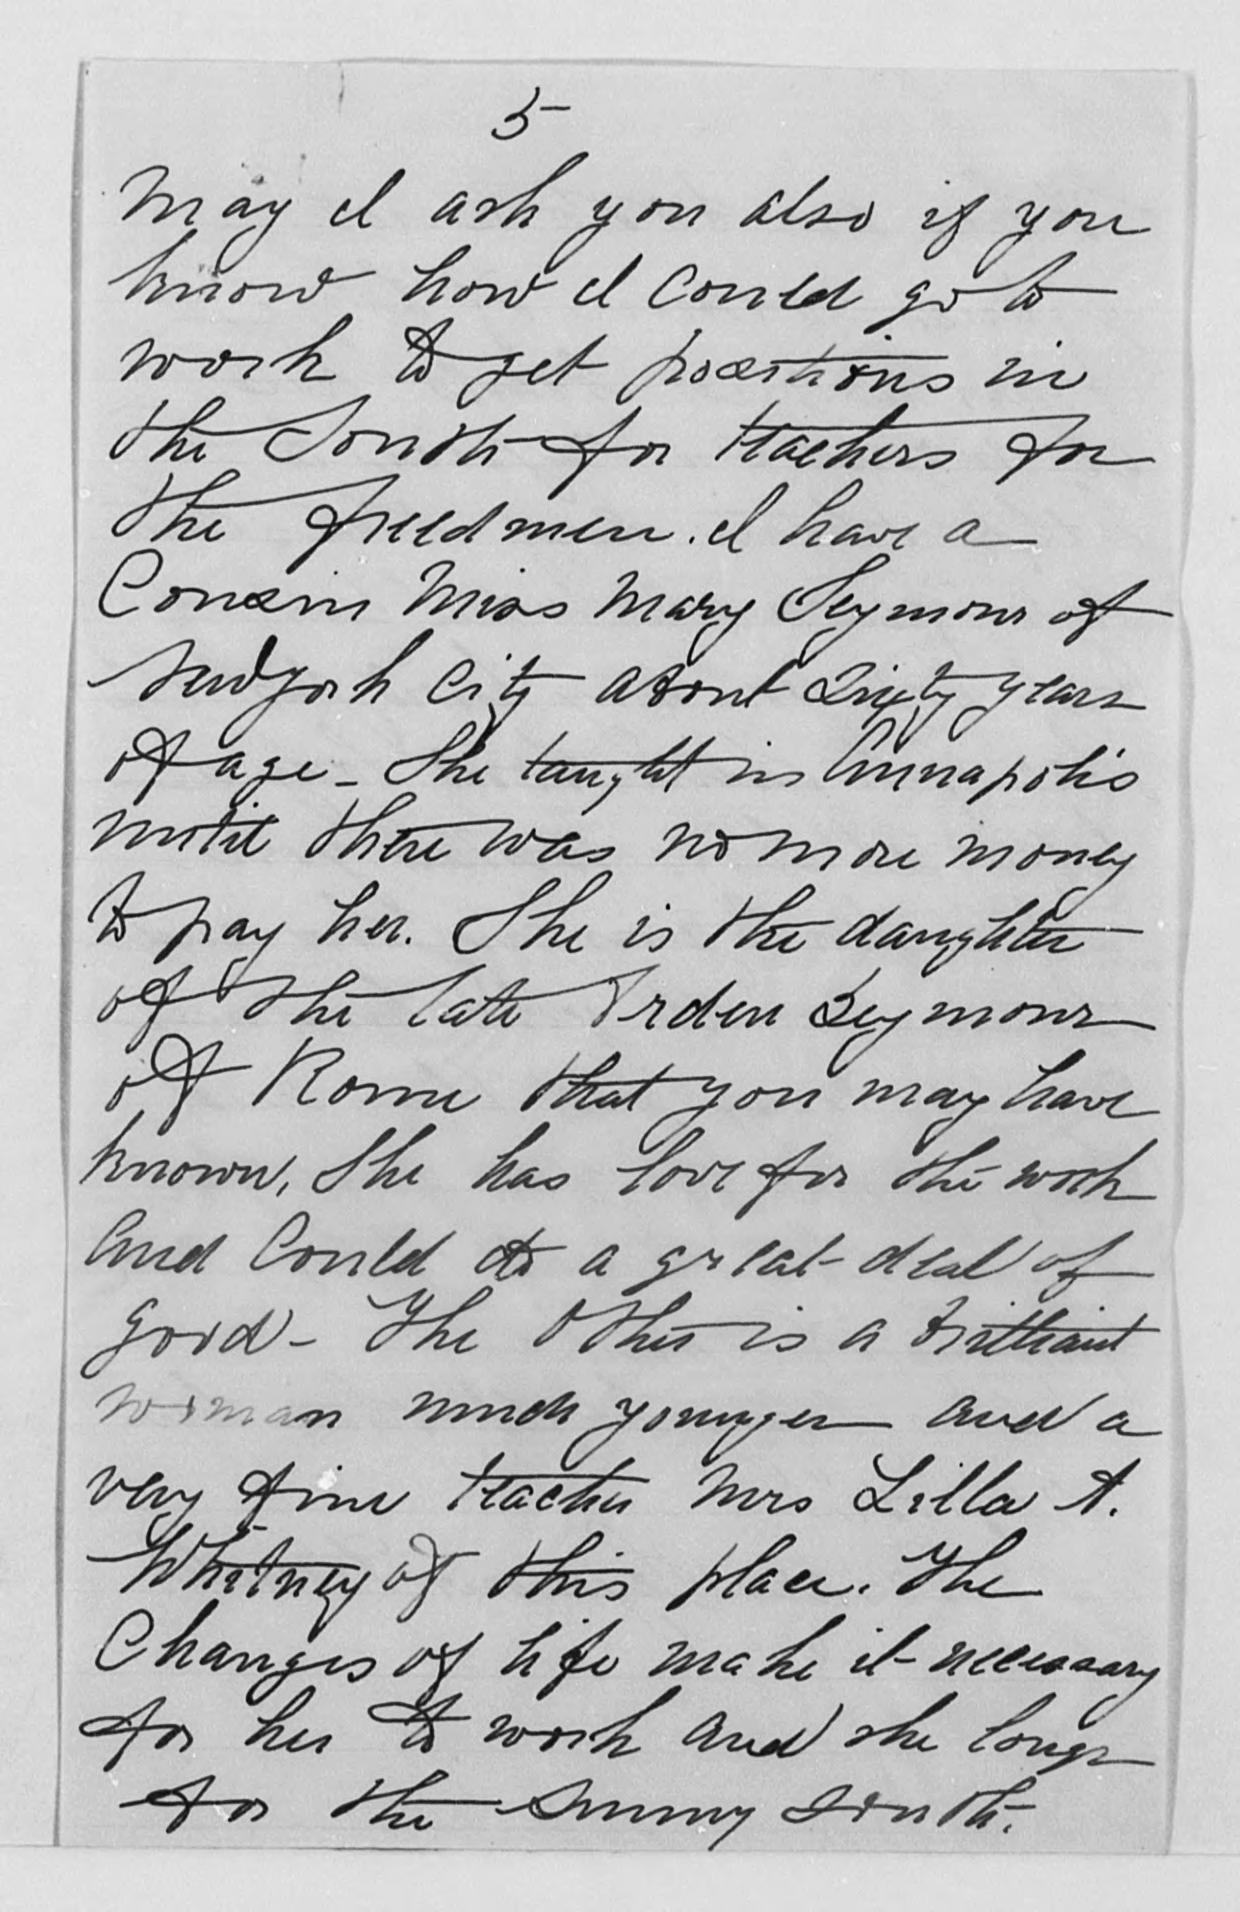 5
May I ask you also if you
know how I could go to
work to get positions in
the South for teachers for
the freedmen. I have a
Cousin Miss Mary Seymour of
New York City about sixty years
of age - She taught in Annapolis
until there was no more money
to pay her. She is the daughter
of the late Arden Seymour
of Rome that you may have
known, She has love for the work
and could do a great deal of
good - The other is a brilliant
woman much younger and a
very fine teacher Mrs Lilla A.
Whitney of this place. The
Changes of life make it necessary
for her to work and she longs
for the sunny South.